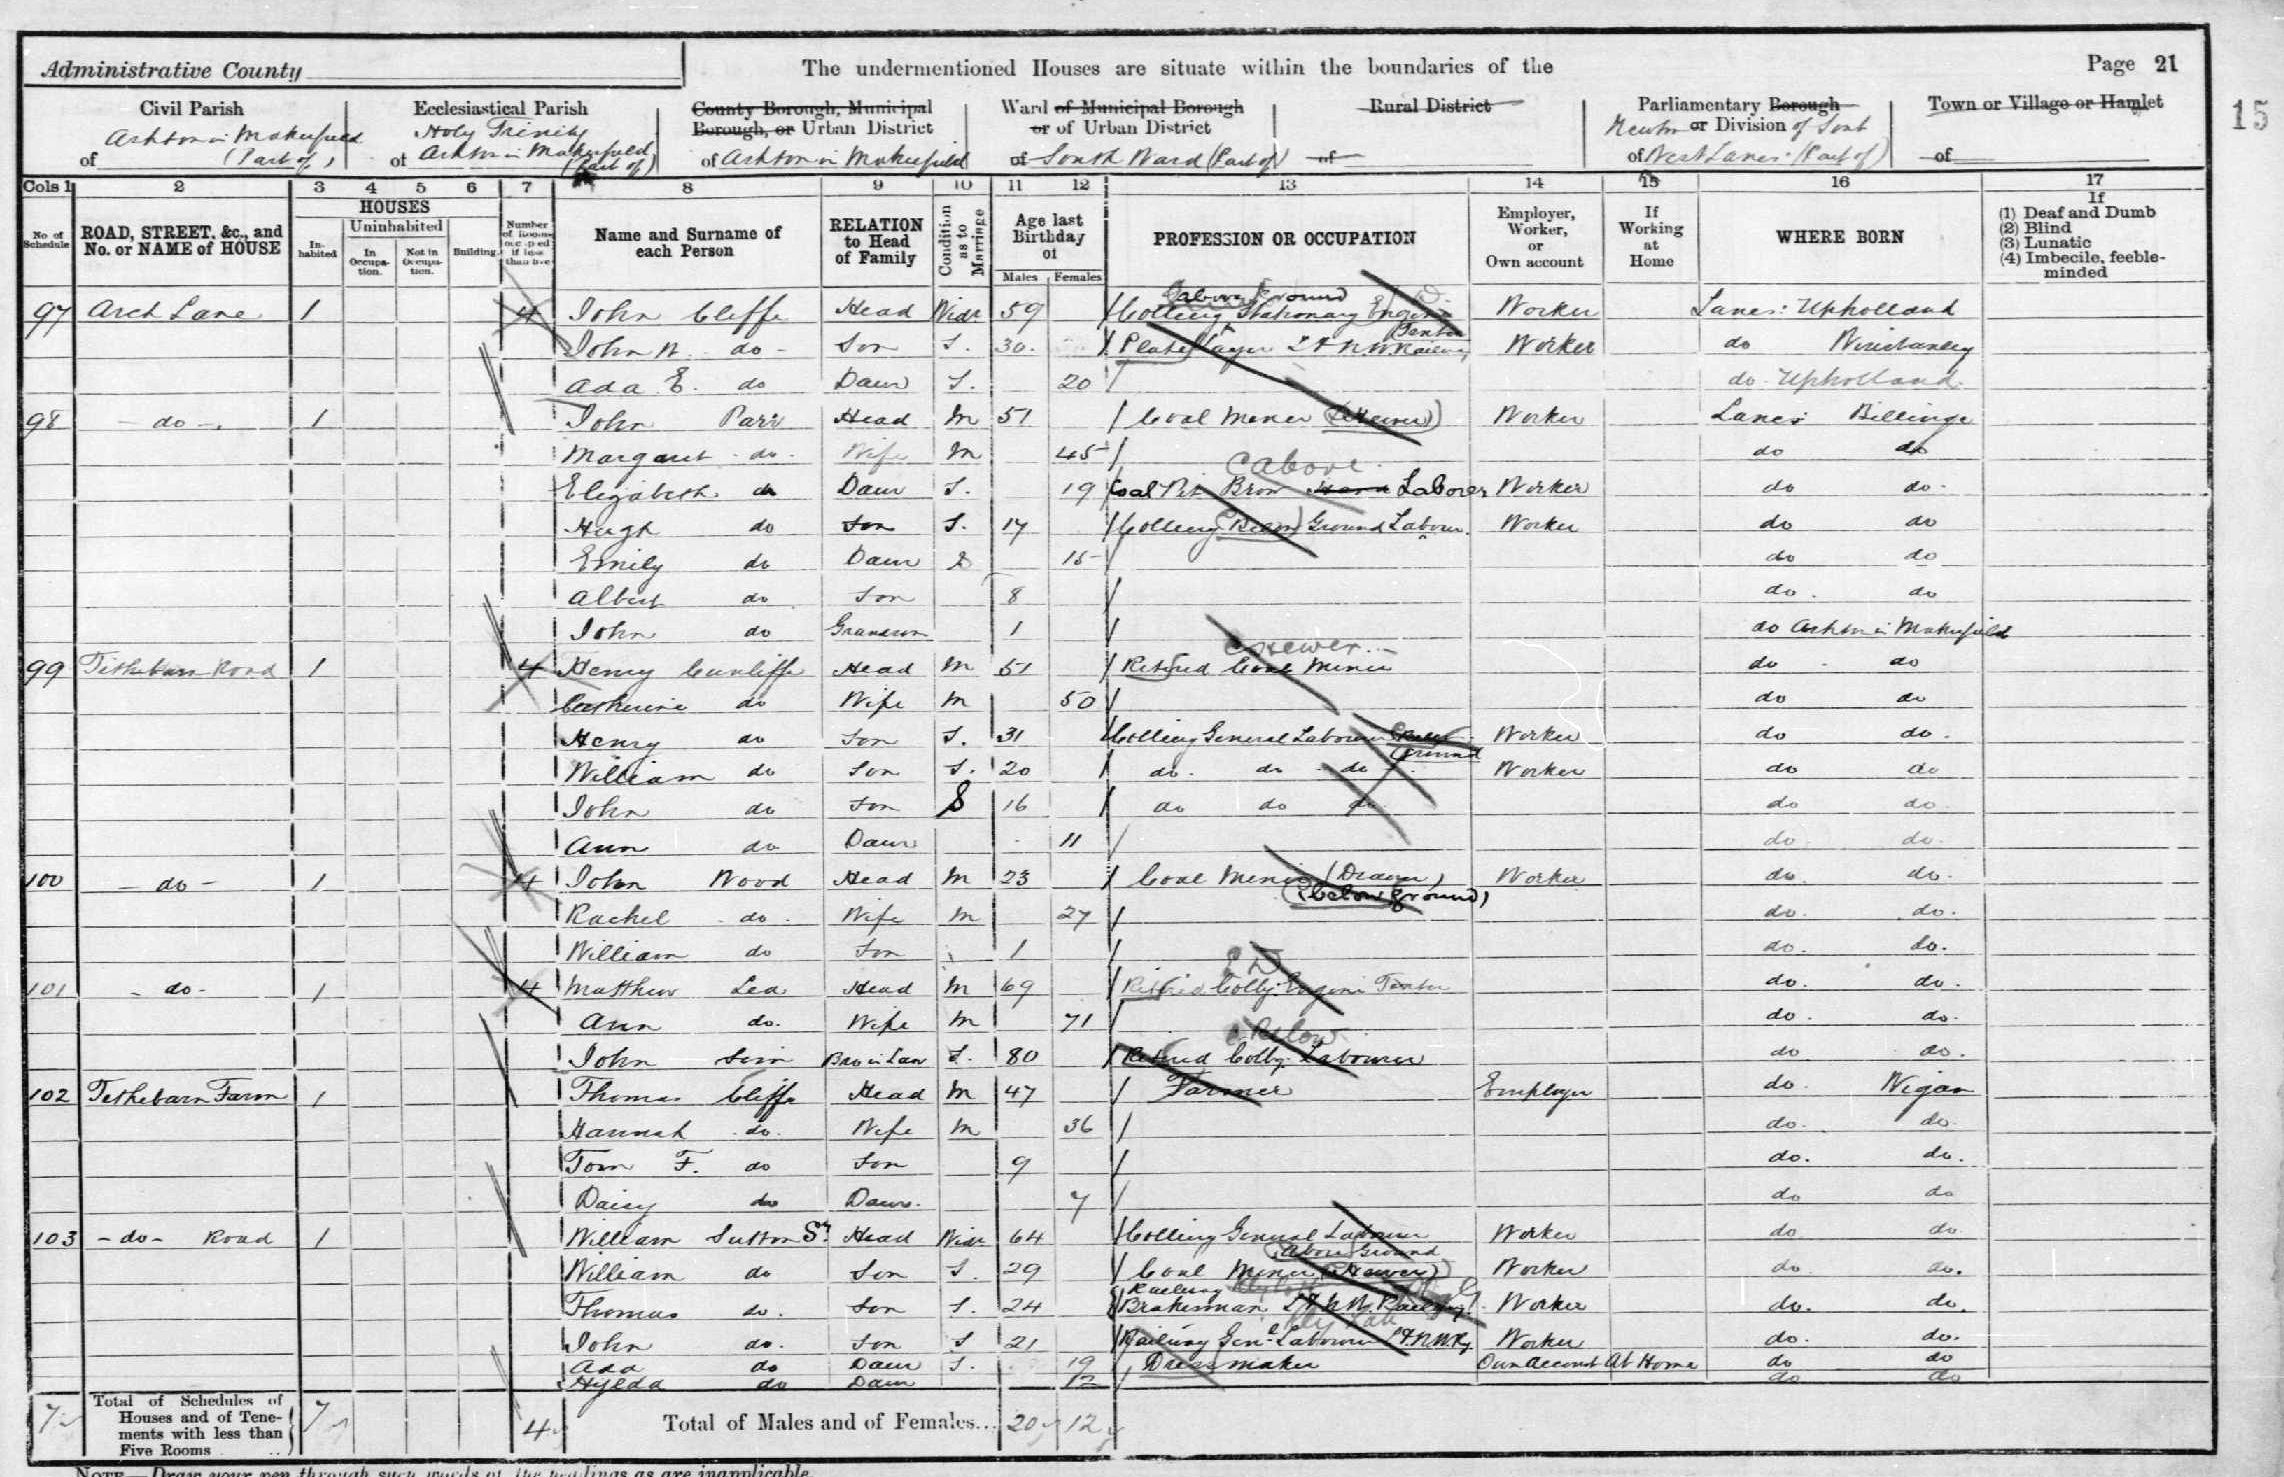 Administrative County
The undermentioned Houses are situate within the boundaries of the
Page 21
15
Civil Parish
of Ashton in Makerfield (Part of)
Ecclesiastical Parish
of Holy Trinity Ashton in Makerfield (Part of)
County Borough, Municipal Borough, or Urban District
of Ashton in Makerfield
Ward of Municipal Borough or of Urban District
of South Ward (Part of)
Rural District
of
Parliamentary Borough or Division
Newton Division of South
of West Lancs: (Part of)
Town or Village or Hamlet
of
Cols 1 2 3 4 5 6 7 8 9 10 11 12 13 14 15 16 17
No. of Schedule
ROAD, STREET, &c., and No. or NAME of HOUSE
HOUSES
Inhabited
Uninhabited
In Occupation.
Not in Occupation.
Building.
Number of Rooms occupied if less than five
Name and Surname of each Person
RELATION to Head of Family
Condition as to Marriage
Age last Birthday of
Males Females
PROFESSION OR OCCUPATION
Employer, Worker, or Own account
If Working at Home
WHERE BORN
If
(1) Deaf and Dumb
(2) Blind
(3) Lunatic
(4) Imbecile, feeble-minded
97 Arch Lane 1 4 John Cliffe Head Widr 59 Colliery Stationary Engine Tenter (above ground) Worker Lancs: Upholland
John W. do Son S. 30 Platelayer L & N W Railway Worker do Winstanley
Ada E. do Daur S. 20 do Upholland
98 do 1 John Parr Head M 51 Coal Miner (Hewer) Worker Lancs Billinge
Margaret do Wife M 45 do do
Elizabeth do Daur S. 19 Coal Pit Brow Laborer Worker do do
above
Hugh do Son S. 17 Colliery (Below) Ground Labour Worker do do
Emily do Daur S 15 do do
Albert do Son 8 do do
John do Grandson 1 do Ashton in Makerfield
99 Tithebarn Road 1 4 Henry Cunliffe Head M 51 Retired Coal Miner do do
Hewer
Catherine do Wife M 50 do do
Henry do Son S. 31 Colliery General Labourer Ground Worker do do
William do Son S. 20 do do do Worker do do
John do Son S 16 do do do do do
Ann do Daur 11 do do
100 do 1 4 John Wood Head M 23 Coal Miner (Drawer) Worker do do
(below ground)
Rachel do Wife M 27 do do
William do Son 1 do do
101 do 1 4 Matthew Lea Head M 69 Retired Colly. Engine Tenter do do
Ann do Wife M 71 do do
Below
John Sim Bro in Law S. 80 Retired Colly. Labourer do do
102 Tithebarn Farm 1 Thomas Cliffe Head M 47 Farmer Employer do Wigan
Hannah do Wife M 36 do do
Tom F. do Son 9 do do
Daisy do Daur 7 do do
103 do Road 1 William Sutton Sr. Head Widr 64 Colliery General Labourer Worker do do
Above Ground
William do Son S. 29 Coal Miner (Hewer) Worker do do
Thomas do Son S. 24 Railway Brakesman L & N W. Railway Worker do do
John do Son S 21 Railway Genl Labourer L & N W Ry Worker do do
Ada do Daur S. 19 Dressmaker Own account At Home do do
Hylda do Daur 12 do do
7 Total of Schedules of Houses and of Tenements with less than Five Rooms .. 7 4 Total of Males and of Females... 20 12
NOTE—Draw your pen through such words of the headings as are inapplicable.